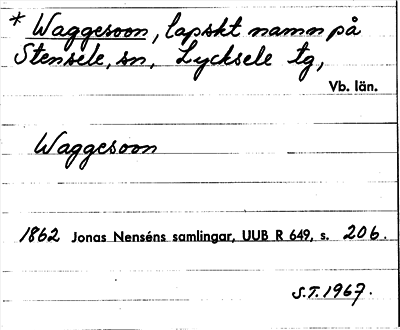 * Waggesoon, lapskt namn på
Stensele, sn, Lycksele tg,
Vb. län.
Waggesoon
1862 Jonas Nenséns samlingar, UUB R 649, s. 206.
S.T. 1967.